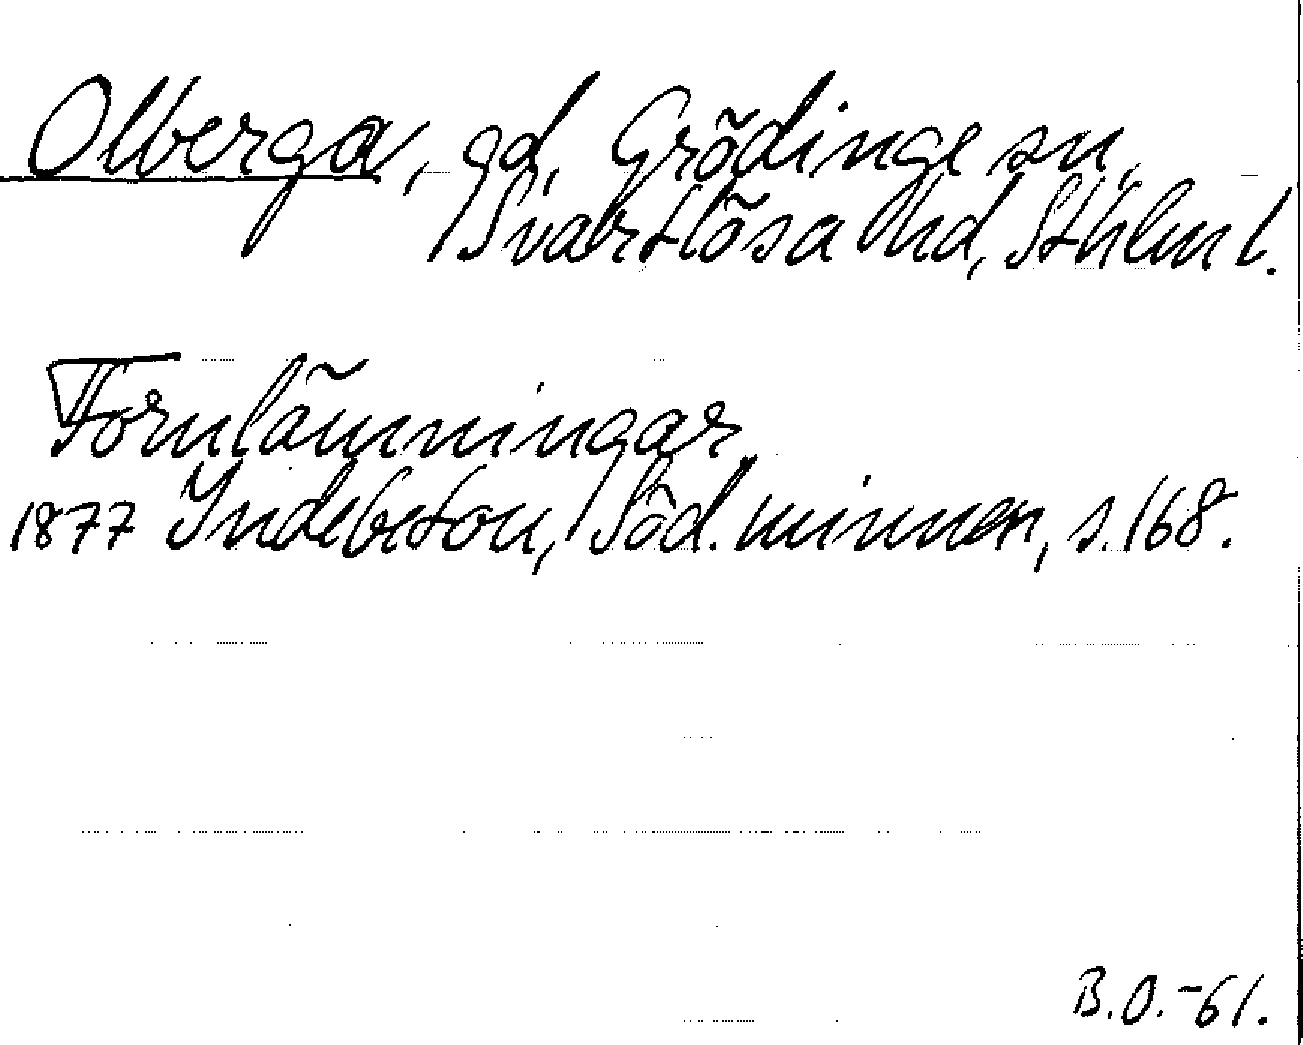 Olberga, gd, Grödinge sn,
Svartlösa hd, Sthlm l.
Fornlämningar.
1877 Indebetou, Söd. minnen, s. 168.
B.O.-61.